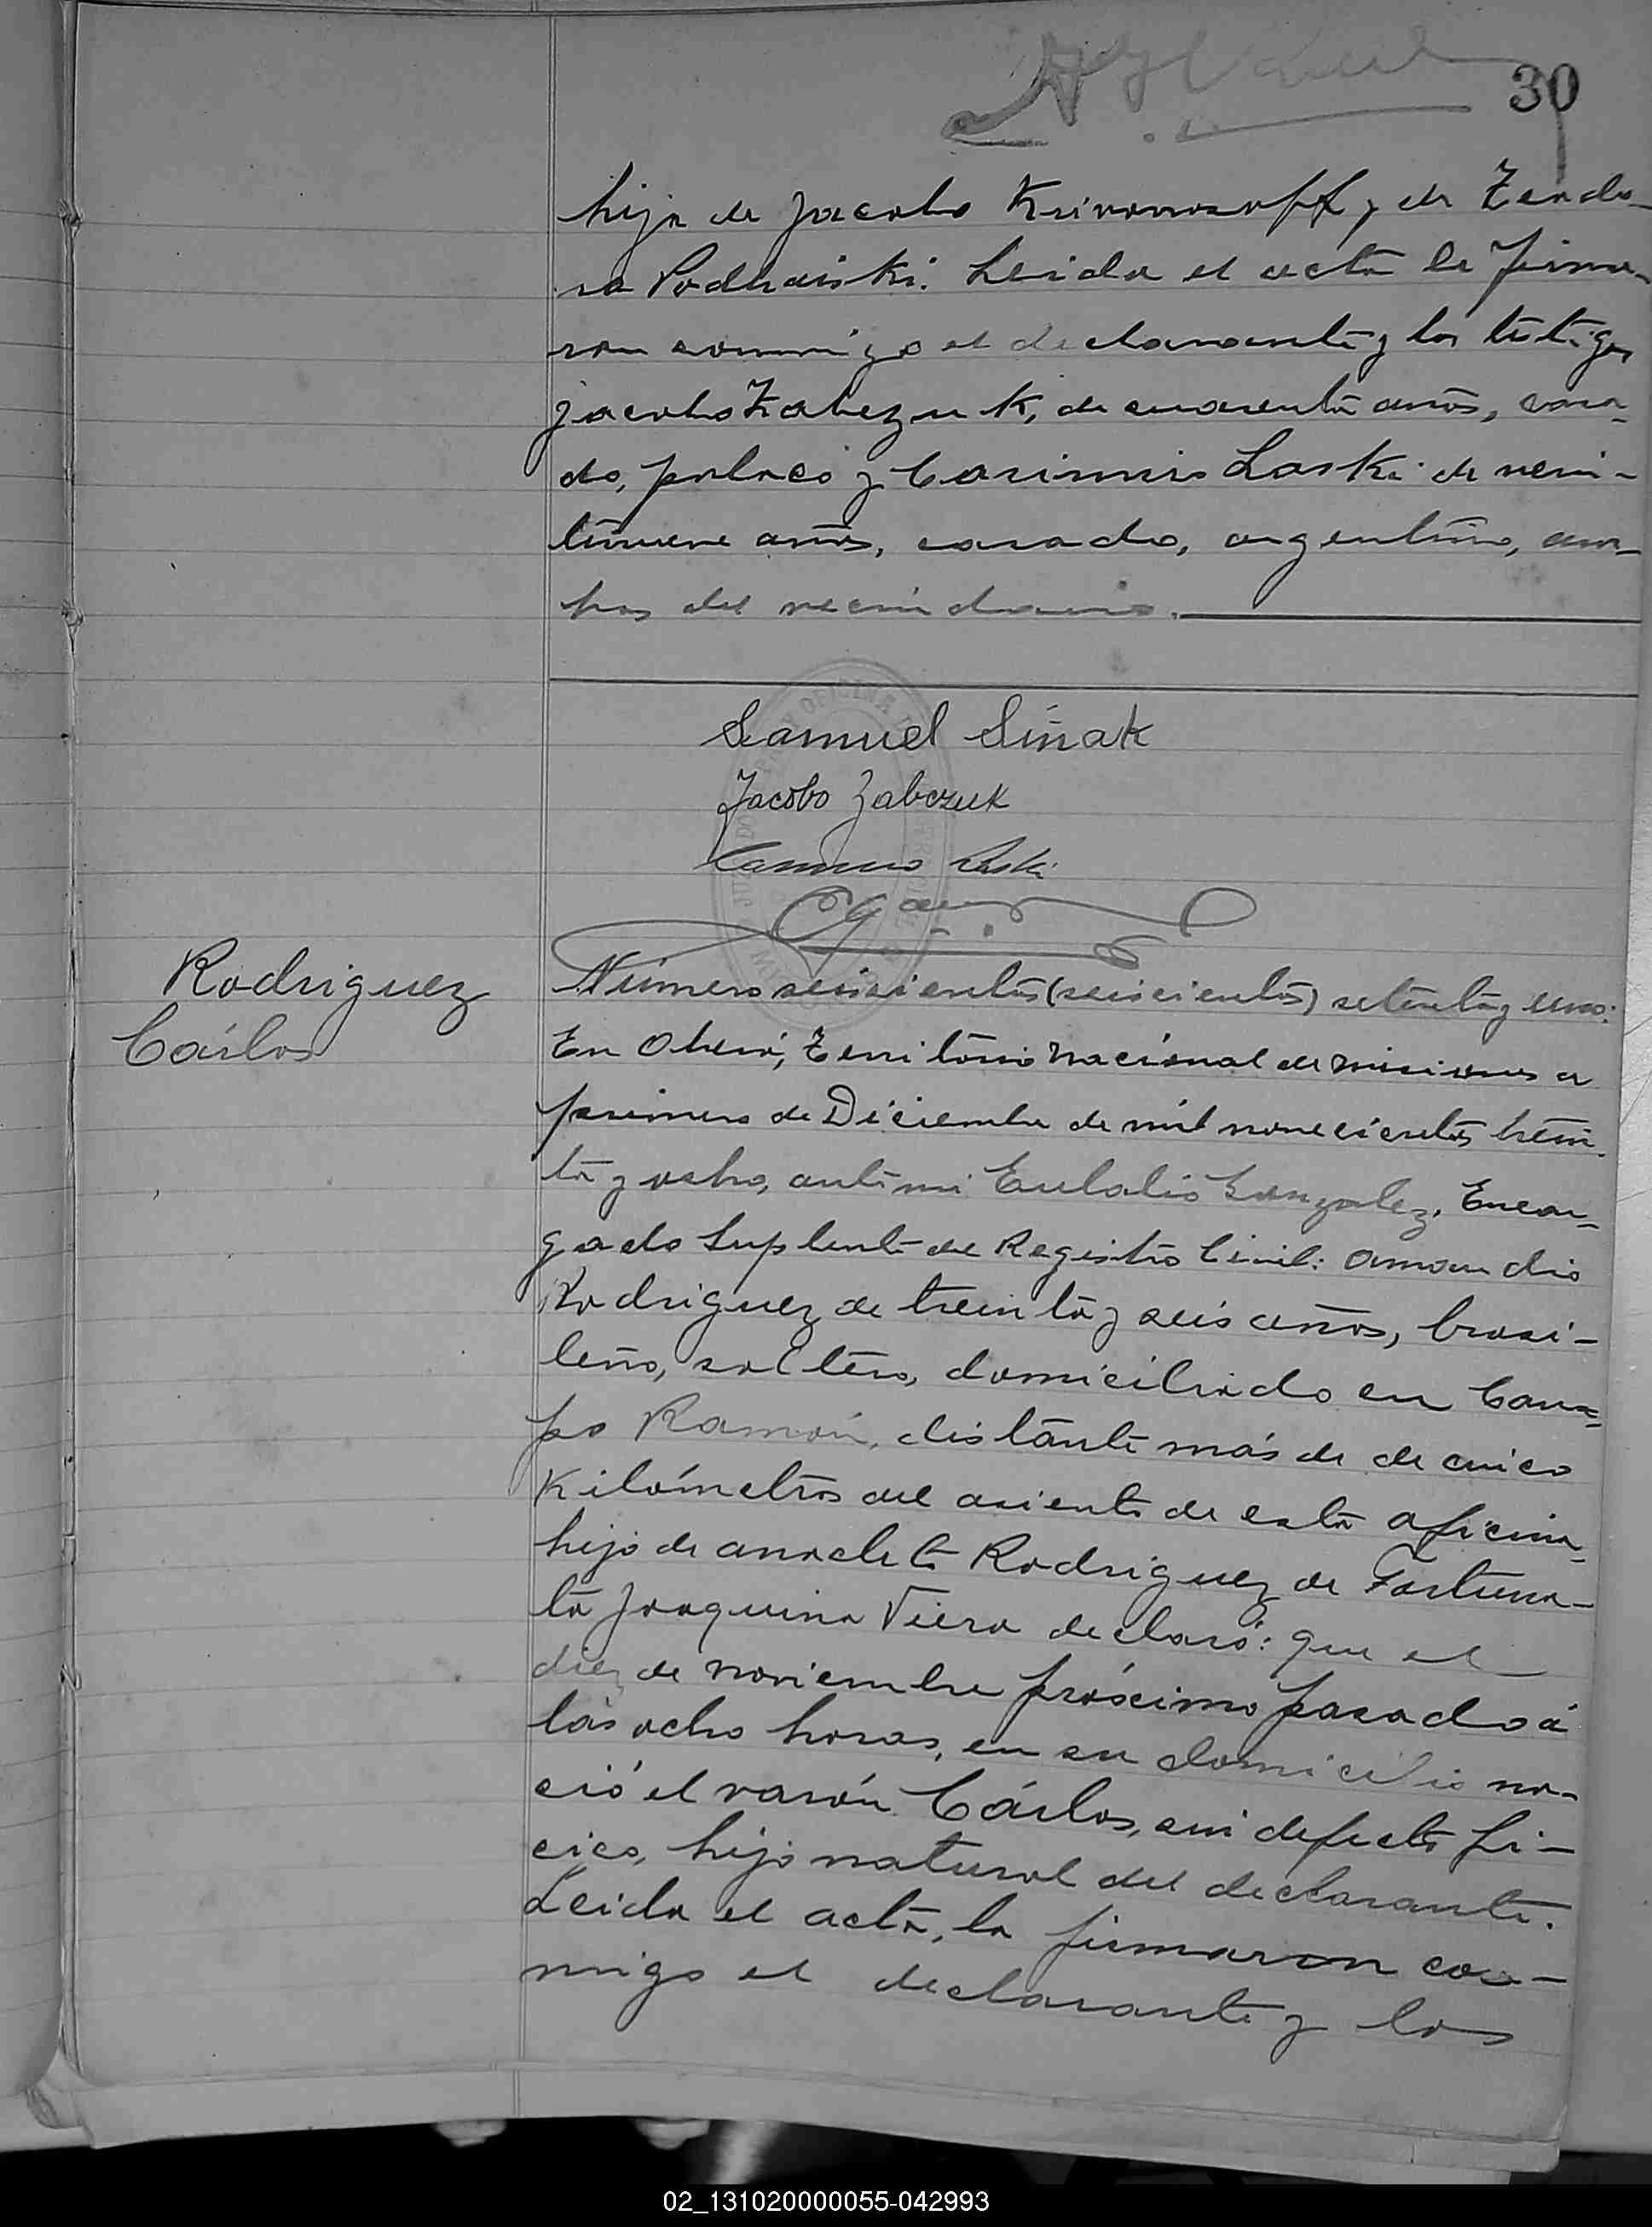 30
hija de Jacobo Krivonosoff y de Teodo-
ra Podhaiski. Leida el acta la firma-
ron conmigo el declarante y los testigos
Jacobo Zabczuk, de cuarenta años, casa-
do, polaco y Casimiro Laski de vein-
tinueve años, casado, argentino, am-
bos del vecindario.
Samuel Siñak
Jacobo Zabczuk
Casimiro Laski
Rodriguez
Cárlos
Número seiscientos (seiscientos) setenta y uno:
En Oberá, Territorio Nacional de Misiones a
primero de Diciembre de mil novecientos trein-
ta y ocho, ante mi Eulalio Gonzalez, Encar-
gado Suplente del Registro Civil: Amandio
Rodriguez de treinta y seis años, brasi-
leño, soltero, domiciliado en Cam-
po Ramón, distante más de de cinco
Kilómetros del asiento de esta oficina,
hijo de Anacleto Rodriguez de Fortuna-
ta Joaquina Viera declaró: que el
diez de noviembre próximo pasado á
las ocho horas, en su domicilio na-
ció el varón Cárlos, sin defecto fi-
cico, hijo natural del declarante.
Leida el acta, la firmaron con-
migo el declarante y los
02_131020000055-042993